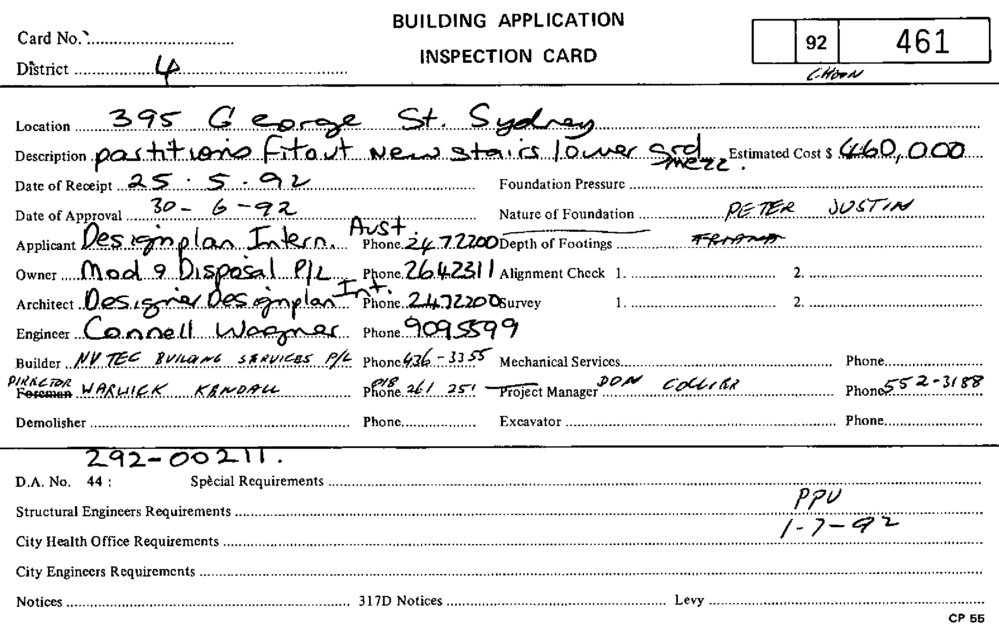 BUILDING APPLICATION
INSPECTION CARD
Card No.
District 4
92 461
CHOON
Location 395 George St. Sydney
Description partitions fitout new stairs lower grd mezz. Estimated Cost $ 460,000
Date of Receipt 25.5.92 Foundation Pressure
Date of Approval 30-6-92 Nature of Foundation PETER JUSTIN
Applicant Designplan Intern. Aust. Phone 2472200 Depth of Footings
Owner Mod 9 Disposal P/L Phone 2642311 Alignment Check 1. 2.
Architect Designer Designplan Int. Phone 2472200 Survey 1. 2.
Engineer Connell Wagner Phone 9095599
Builder NV TEC BUILDING SERVICES P/L Phone 436-3355 Mechanical Services Phone
DIRECTOR Foreman WARWICK KENDALL Phone 018 261 251 Project Manager DON COLLIER Phone 552-3188
Demolisher Phone Excavator Phone
292-00211.
D.A. No. 44 : Special Requirements
Structural Engineers Requirements PPU
City Health Office Requirements 1-7-92
City Engineers Requirements
Notices 317D Notices Levy
CP 55